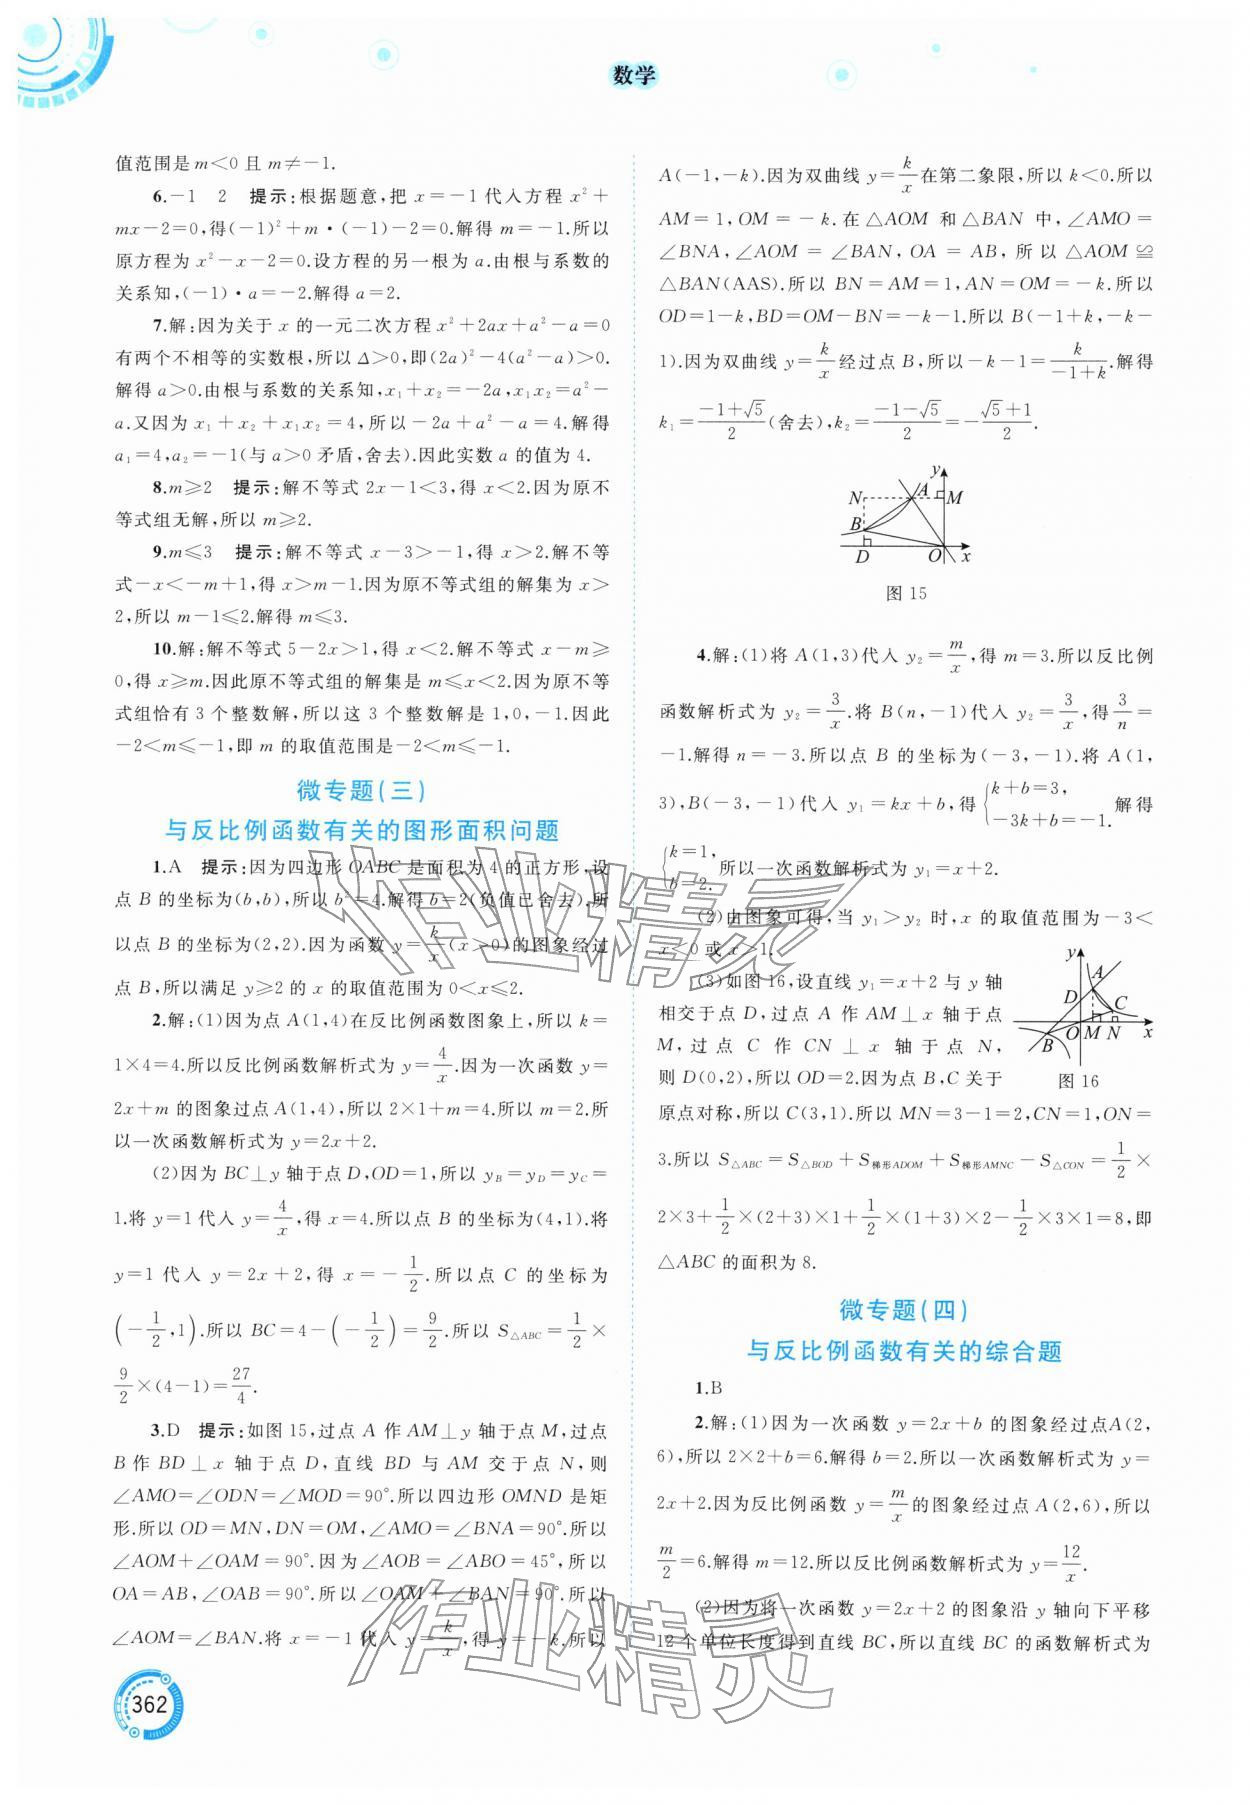 数学
值范围是 m＜0 且 m≠－1.
6.－1　2　提示:根据题意,把 x＝－1 代入方程 x²＋
mx－2＝0,得(－1)²＋m·(－1)－2＝0.解得 m＝－1.所以
原方程为 x²－x－2＝0.设方程的另一根为 a.由根与系数的
关系知,(－1)·a＝－2.解得 a＝2.
7.解:因为关于 x 的一元二次方程 x²＋2ax＋a²－a＝0
有两个不相等的实数根,所以 Δ＞0,即(2a)²－4(a²－a)＞0.
解得 a＞0.由根与系数的关系知,x₁＋x₂＝－2a,x₁x₂＝a²－
a.又因为 x₁＋x₂＋x₁x₂＝4,所以－2a＋a²－a＝4.解得
a₁＝4,a₂＝－1(与 a＞0 矛盾,舍去).因此实数 a 的值为 4.
8.m≥2　提示:解不等式 2x－1＜3,得 x＜2.因为原不
等式组无解,所以 m≥2.
9.m≤3　提示:解不等式 x－3＞－1,得 x＞2.解不等
式－x＜－m＋1,得 x＞m－1.因为原不等式组的解集为 x＞
2,所以 m－1≤2.解得 m≤3.
10.解:解不等式 5－2x＞1,得 x＜2.解不等式 x－m≥
0,得 x≥m.因此原不等式组的解集是 m≤x＜2.因为原不等
式组恰有 3 个整数解,所以这 3 个整数解是 1,0,－1.因此
－2＜m≤－1,即 m 的取值范围是－2＜m≤－1.
微专题(三)
与反比例函数有关的图形面积问题
1.A　提示:因为四边形 OABC 是面积为 4 的正方形,设
点 B 的坐标为(b,b),所以 b²＝4.解得 b＝2(负值已舍去).所
以点 B 的坐标为(2,2).因为函数 y＝k/x(x＞0)的图象经过
点 B,所以满足 y≥2 的 x 的取值范围为 0＜x≤2.
2.解:(1)因为点 A(1,4)在反比例函数图象上,所以 k＝
1×4＝4.所以反比例函数解析式为 y＝4/x.因为一次函数 y＝
2x＋m 的图象过点 A(1,4),所以 2×1＋m＝4.所以 m＝2.所
以一次函数解析式为 y＝2x＋2.
(2)因为 BC⊥y 轴于点 D,OD＝1,所以 y_B＝y_D＝y_C＝
1.将 y＝1 代入 y＝4/x,得 x＝4.所以点 B 的坐标为(4,1).将
y＝1 代入 y＝2x＋2,得 x＝－1/2.所以点 C 的坐标为
(－1/2,1).所以 BC＝4－(－1/2)＝9/2.所以 S△ABC＝1/2×
9/2×(4－1)＝27/4.
3.D　提示:如图 15,过点 A 作 AM⊥y 轴于点 M,过点
B 作 BD⊥x 轴于点 D,直线 BD 与 AM 交于点 N,则
∠AMO＝∠ODN＝∠MOD＝90°.所以四边形 OMND 是矩
形.所以 OD＝MN,DN＝OM,∠AMO＝∠BNA＝90°.所以
∠AOM＋∠OAM＝90°.因为∠AOB＝∠ABO＝45°,所以
OA＝AB,∠OAB＝90°.所以∠OAM＋∠BAN＝90°.所以
∠AOM＝∠BAN.将 x＝－1 代入 y＝k/x,得 y＝－k.所以
362
A(－1,－k).因为双曲线 y＝k/x在第二象限,所以 k＜0.所以
AM＝1,OM＝－k.在△AOM 和△BAN 中,∠AMO＝
∠BNA,∠AOM＝∠BAN,OA＝AB,所以△AOM≌
△BAN(AAS).所以 BN＝AM＝1,AN＝OM＝－k.所以
OD＝1－k,BD＝OM－BN＝－k－1.所以 B(－1＋k,－k－
1).因为双曲线 y＝k/x经过点 B,所以－k－1＝k/(－1＋k).解得
k₁＝(－1＋√5)/2(舍去),k₂＝(－1－√5)/2＝－(√5＋1)/2.
y
N
A
M
B
D
O
x
图 15
4.解:(1)将 A(1,3)代入 y₂＝m/x,得 m＝3.所以反比例
函数解析式为 y₂＝3/x.将 B(n,－1)代入 y₂＝3/x,得3/n＝
－1.解得 n＝－3.所以点 B 的坐标为(－3,－1).将 A(1,
3),B(－3,－1)代入 y₁＝kx＋b,得{k＋b＝3,－3k＋b＝－1.解得
{k＝1,b＝2.所以一次函数解析式为 y₁＝x＋2.
(2)由图象可得,当 y₁＞y₂ 时,x 的取值范围为－3＜
x＜0 或 x＞1.
(3)如图 16,设直线 y₁＝x＋2 与 y 轴
相交于点 D,过点 A 作 AM⊥x 轴于点
M,过点 C 作 CN⊥x 轴于点 N,
则 D(0,2),所以 OD＝2.因为点 B,C 关于
y
A
D
C
O
M
N
x
B
图 16
原点对称,所以 C(3,1).所以 MN＝3－1＝2,CN＝1,ON＝
3.所以 S△ABC＝S△BOD＋S梯形ADOM＋S梯形AMNC－S△CON＝1/2×
2×3＋1/2×(2＋3)×1＋1/2×(1＋3)×2－1/2×3×1＝8,即
△ABC 的面积为 8.
微专题(四)
与反比例函数有关的综合题
1.B
2.解:(1)因为一次函数 y＝2x＋b 的图象经过点A(2,
6),所以 2×2＋b＝6.解得 b＝2.所以一次函数解析式为 y＝
2x＋2.因为反比例函数 y＝m/x的图象经过点 A(2,6),所以
m/2＝6.解得 m＝12.所以反比例函数解析式为 y＝12/x.
(2)因为将一次函数 y＝2x＋2 的图象沿 y 轴向下平移
12 个单位长度得到直线 BC,所以直线 BC 的函数解析式为
作业精灵
作业精灵